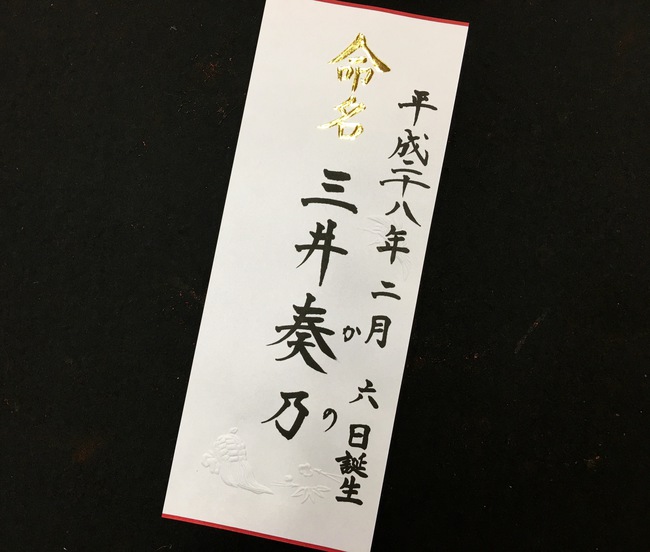 平成二十八年 二月 六日誕生
命名
三井奏乃
かの